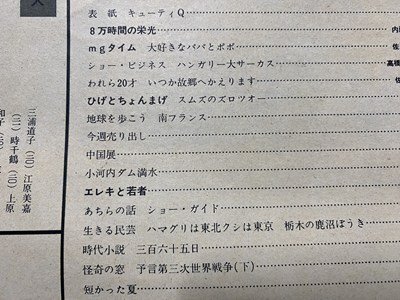 表　紙　キューティQ
8万時間の栄光
mgタイム　大好きなパパとボボ
ショー・ビジネス　ハンガリー大サーカス
われら20才　いつか故郷へかえります
ひげとちょんまげ　スムズのズロツオー
地球を歩こう　南フランス
今週売り出し
中国展
小河内ダム満水
エレキと若者
あちらの話　ショー・ガイド
生きる民芸　ハマグリは東北クシは東京　栃木の鹿沼ぼうき
時代小説　三百六十五日
怪奇の窓　予言第三次世界戦争(下)
短かった夏
三浦道子(三)江原美嘉
(二)時千鶴(三)上原